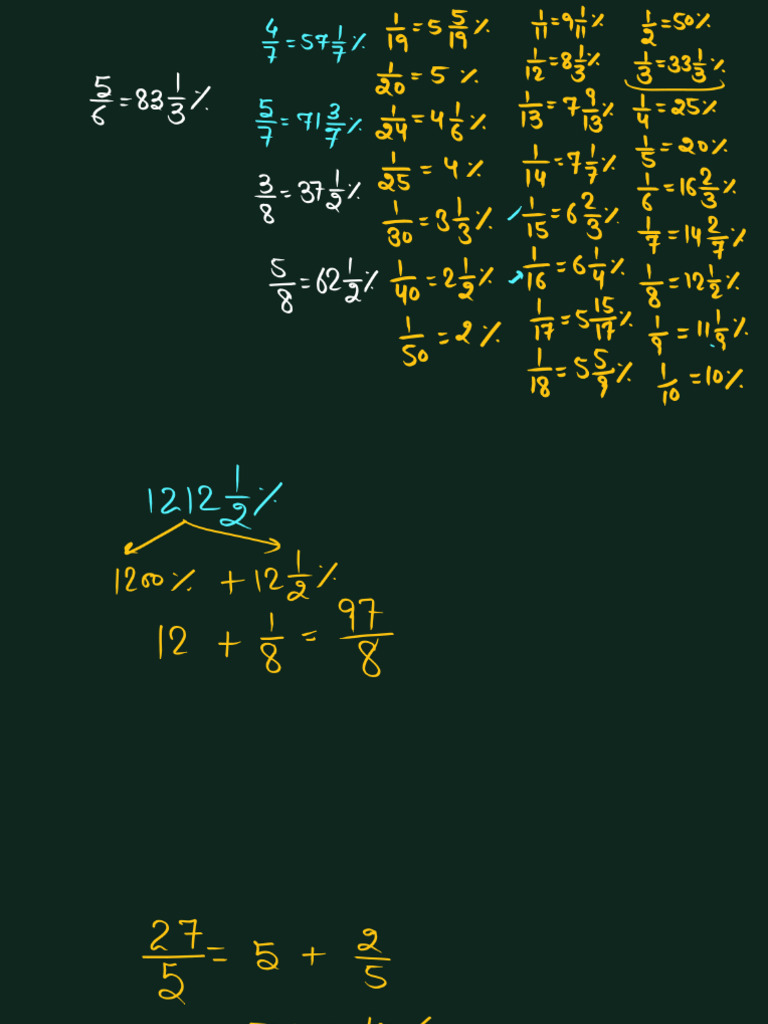 5/6 = 83 1/3 %
4/7 = 57 1/7 %
5/7 = 71 3/7 %
3/8 = 37 1/2 %
5/8 = 62 1/2 %
1/19 = 5 5/19 %
1/20 = 5 %
1/24 = 4 1/6 %
1/25 = 4 %
1/30 = 3 1/3 %
1/40 = 2 1/2 %
1/50 = 2 %
1/11 = 9 1/11 %
1/12 = 8 1/3 %
1/13 = 7 9/13 %
1/14 = 7 1/7 %
1/15 = 6 2/3 %
1/16 = 6 1/4 %
1/17 = 5 15/17 %
1/18 = 5 5/9 %
1/2 = 50 %
1/3 = 33 1/3 %
1/4 = 25 %
1/5 = 20 %
1/6 = 16 2/3 %
1/7 = 14 2/7 %
1/8 = 12 1/2 %
1/9 = 11 1/9 %
1/10 = 10 %
1212 1/2 %
1200 % + 12 1/2 %
12 + 1/8 = 97/8
27/5 = 5 + 2/5